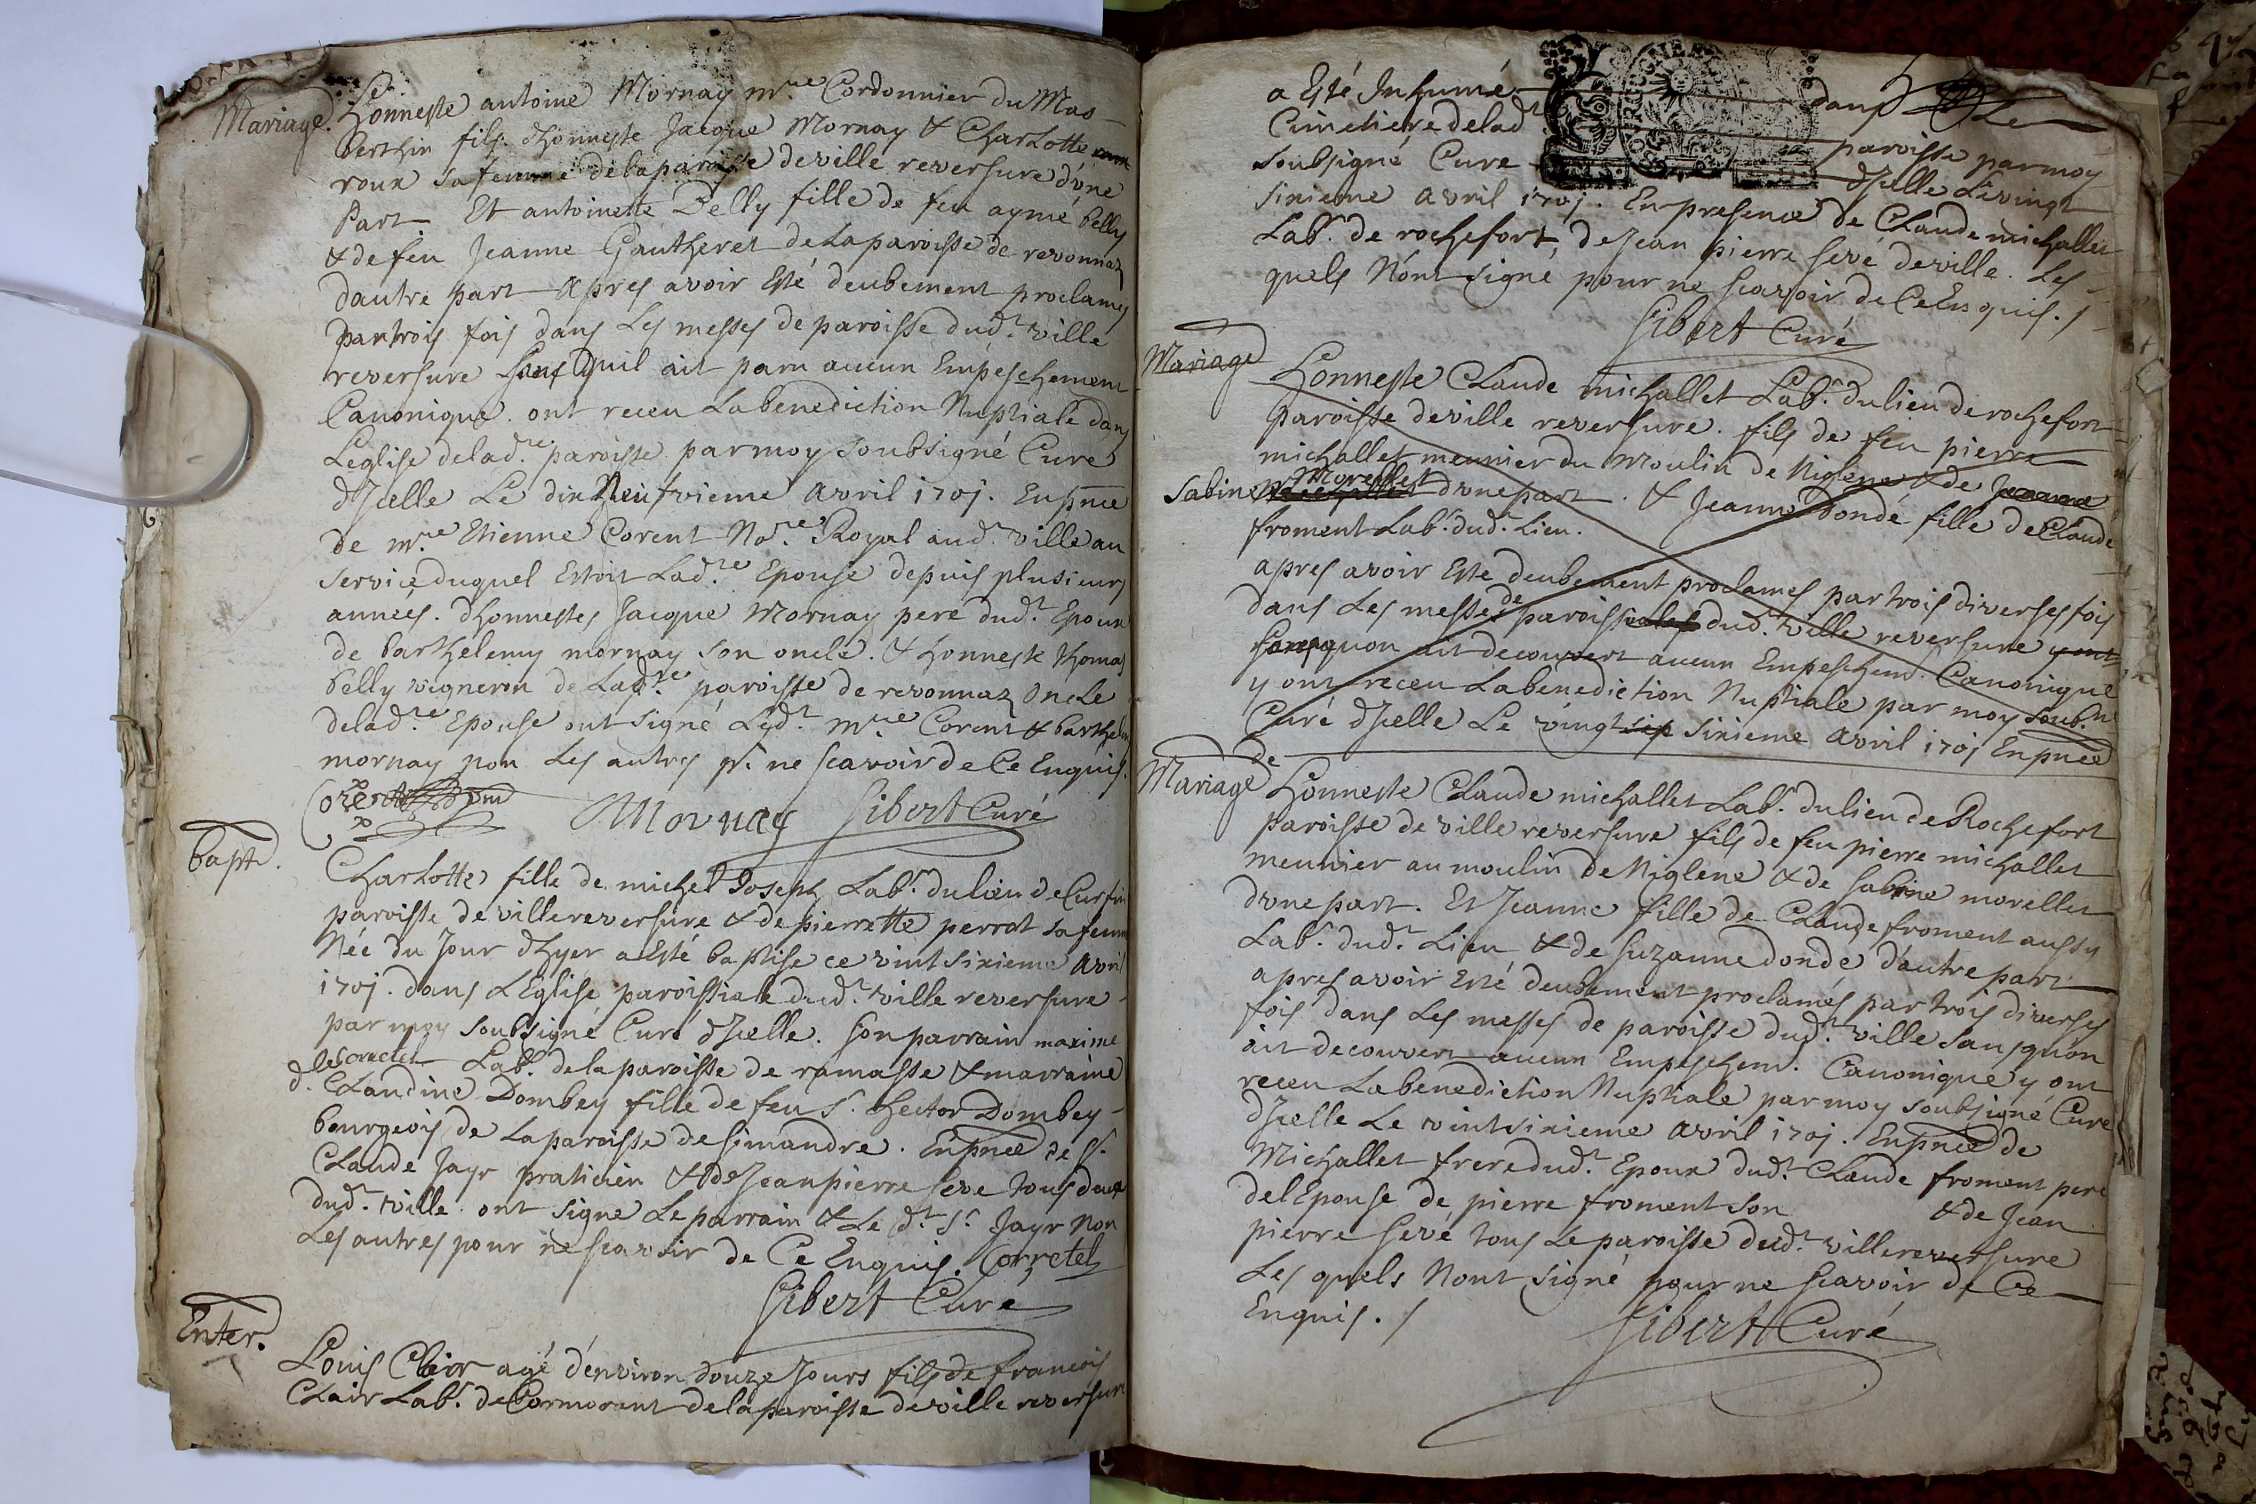 Mariage. Honneste antoine Mornay m.re Cordonnier du Mas
Berthin fils dhonneste Jacque Mornay & Charlotte
roux sa femme de la paroisse de ville reversure d'une
Part Et antoinette Pelly fille de feu aymé pelly
& de feu Jeanne Gautheret de la paroisse de revonnaz
dautre part apres avoir Esté deubement proclames
par trois fois dans Les messes de paroisse dud.t ville
reversure sans quil ait paru aucun Empeschement
Canonique ont receu La benediction Nuptiale dans
L'eglise de lad.te paroisse par moy soubsigné Curé
d'Jcelle Le dix Neufvieme avril 1701. En pnce
de m.re Etienne Corent No.re Royal aud. ville au
service duquel Estoit Lad.te Epouse depuis plusieurs
années. dhonnestes Jacque Mornay pere dud.t Epoux
de barthelemy mornay son oncle. & honneste thomas
pelly vigneron de Lad.te paroisse de revonnaz oncle
de lad.te Epouse ont signé Led.t m.re Corent & barthelemy
mornay non Les autres p.r ne scavoir de Ce Enquis.
Corent Mornay Gibert Curé
bapt. Charlotte fille de michel Joseph Lab.r du lieu de Curfin
paroisse de ville reversure & de pierrette perrot sa femme
Née du Jour d'hyer a Esté baptise ce vint sixieme avril
1701. dans L'Eglise paroissiale dud.t ville reversure
par moy soubsigné Curé d'Jcelle. son parrain maxime
Corretel Lab.r de la paroisse de ramasse & marraine
d. Claudine Dombey fille de feu S.r hector Dombey
bourgeois de La paroisse de simandre. En pnce de S.r
Claude Jayr praticien & de Jean pierre seve tous deux
dud.t ville. ont signe Le parrain & Le d.t S.r Jayr non
Les autres pour ne scavoir de Ce Enquis. Corretel
Gibert Curé
Enter.
Louis Clair agé d'environ douze Jours fils de françois
Clair Lab.r de Cormorant de la paroisse de ville reversure
a Esté Inhumé dans Le
Cimetiere de lad.t paroisse par moy
soubsigné Curé d'Jcelle Le vingt
sixieme avril 1701. En presence de Claude michallet
Lab.r de rochefort, de Jean pierre sevé de ville. Les
quels N'ont signé pour ne scavoir de Ce Enquis./
Gibert Curé
Mariage Honneste Claude michallet Lab.r du lieu de rochefort
paroisse de ville reversure. fils de feu pierre
michallet meunier du Moulin de Niglene & de Jeanne
Sabine Morellet d'une part. & Jeanne Dondé fille de Claude
froment Lab.r dud.t Lieu.
apres avoir Esté deubement proclames par trois diverses fois
dans Les messes de paroissiales dud.t ville reversure y ont
sans quon ait decouvert aucun Empeschem.t Canonique
y ont receu La benediction Nuptiale par moy soub.né
Curé d'Jcelle Le vingt sip sixieme avril 1701 En pnce
de
Mariage Honneste Claude michallet Lab.r du lieu de Rochefort
paroisse de ville reversure fils de feu pierre michallet
meunier au moulin de Niglene & de sabine morellet
d'une part. Et Jeanne fille de Claude froment aussy
Lab.r dud.t Lieu & de suzanne dondé d'autre part
apres avoir Esté deubement proclamés par trois diverses
fois dans Les messes de paroisse dud.t ville sans quon
ait decouvert aucun Empeschem.t Canonique y ont
receu La benediction Nuptiale par moy soubsigné Curé
d'Jcelle Le vint sixieme avril 1701. En pnce de
Michallet frere dud.t Epoux dud.t Claude froment pere
de l'Epouse de pierre froment son & de Jean
pierre sevé tous de paroisse dud.t ville reversure
Les quels N'ont signé pour ne scavoir de Ce
Enquis./
Gibert Curé